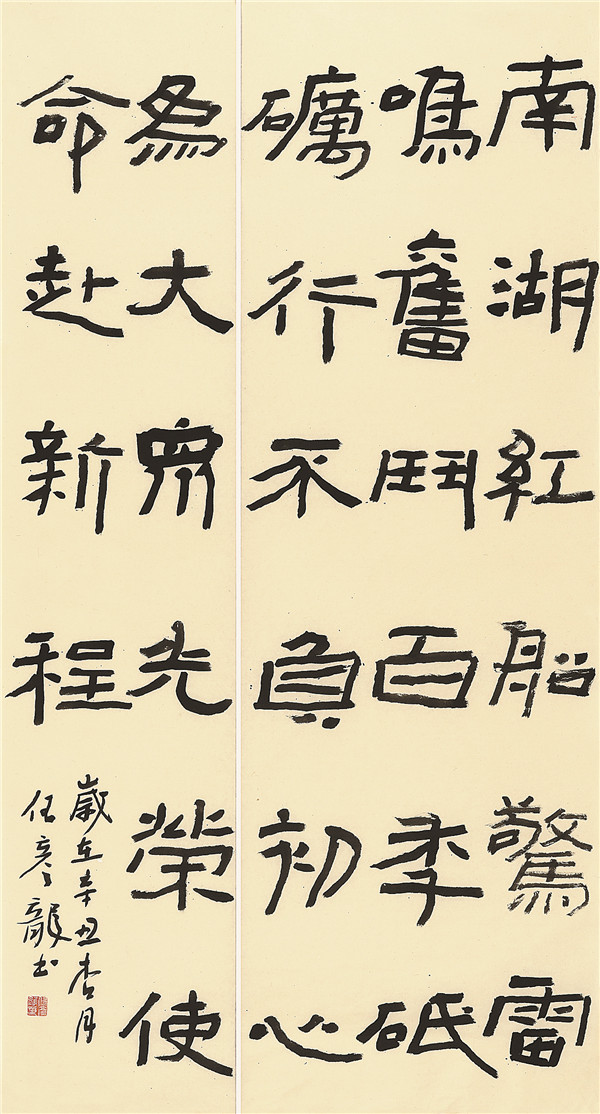 南湖紅船驚雷
鳴奮鬥百秊砥
礪行不負初心
為大眾光榮使
命赴新程
歲在辛丑杏月
任彥龍書